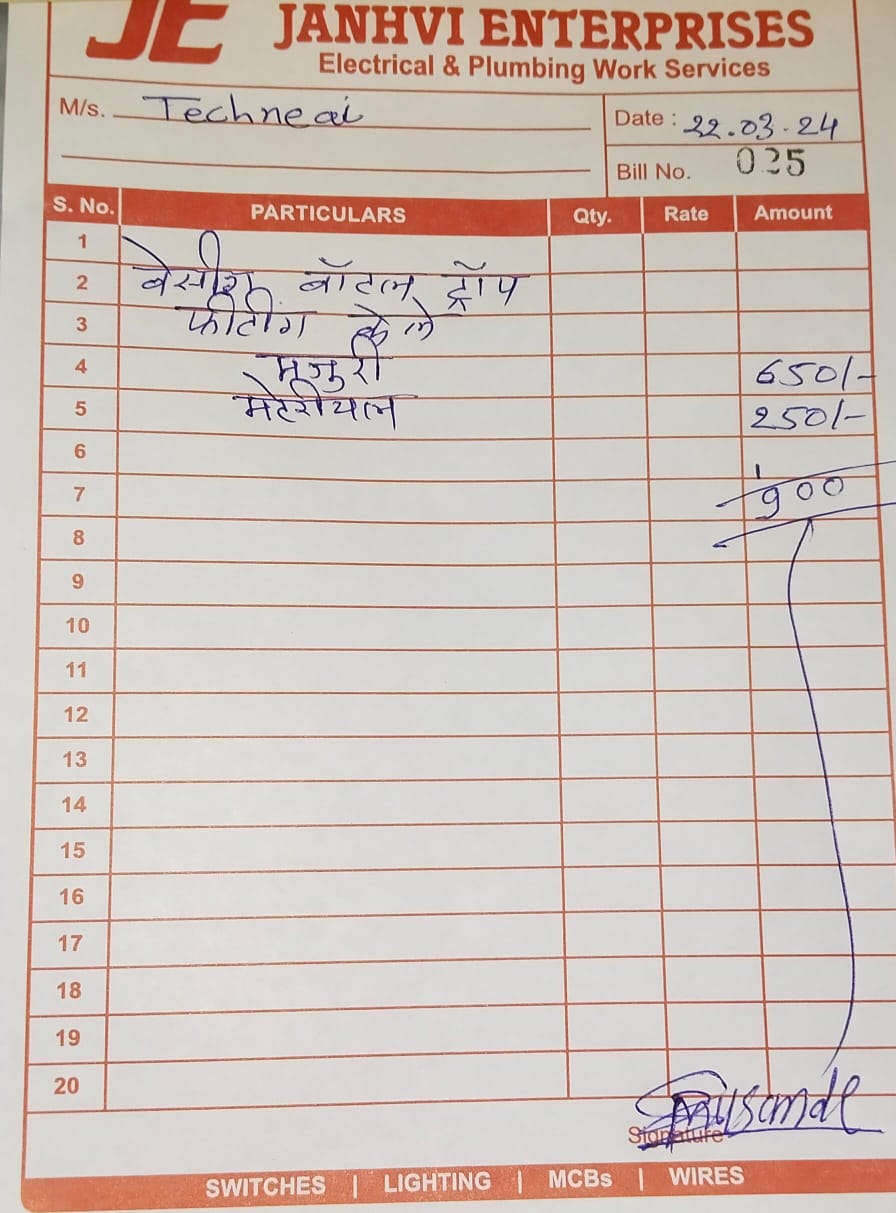 JE JANHVI ENTERPRISES
Electrical & Plumbing Work Services
M/s. Techneai
Date : 22.03.24
Bill No. 025
S. No. PARTICULARS Qty. Rate Amount
1
2 बेसीन बॉटल ट्रॅप
3 फीटींग केले
4 मजुरी 650/-
5 मटेरीयल 250/-
6
7 900
8
9
10
11
12
13
14
15
16
17
18
19
20
Signature
SWITCHES | LIGHTING | MCBs | WIRES